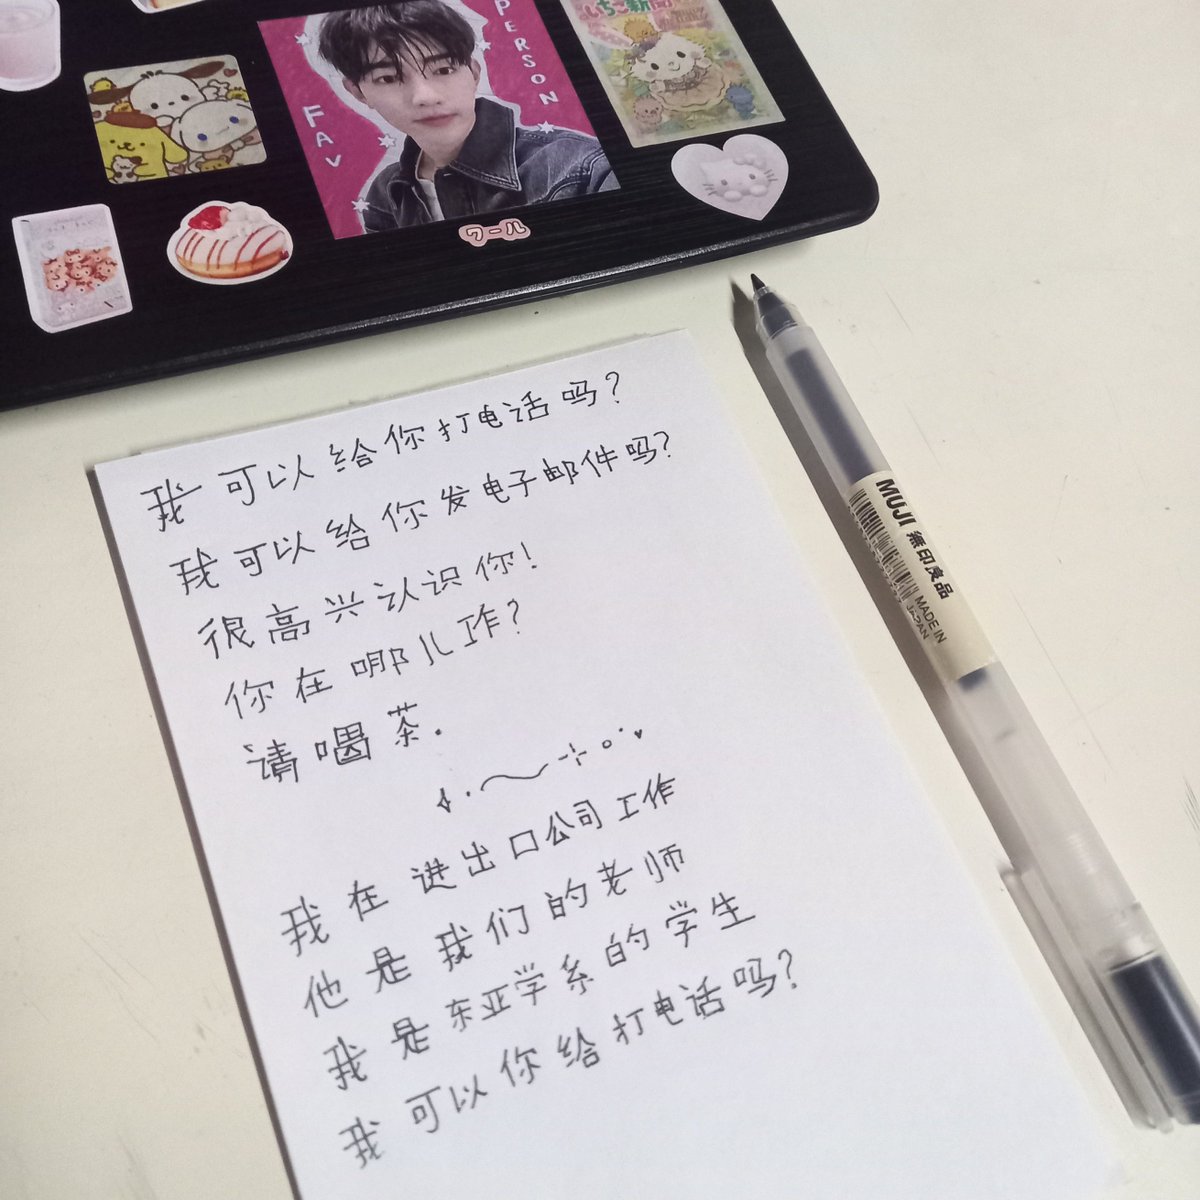 FAV
PERSON
いちご新聞
ワール
我可以给你打电话吗?
我可以给你发电子邮件吗?
很高兴认识你!
你在哪儿工作?
请喝茶.
我在进出口公司工作
他是我们的老师
我是东亚学系的学生
我可以你给打电话吗?
MUJI 無印良品
MADE IN
JAPAN